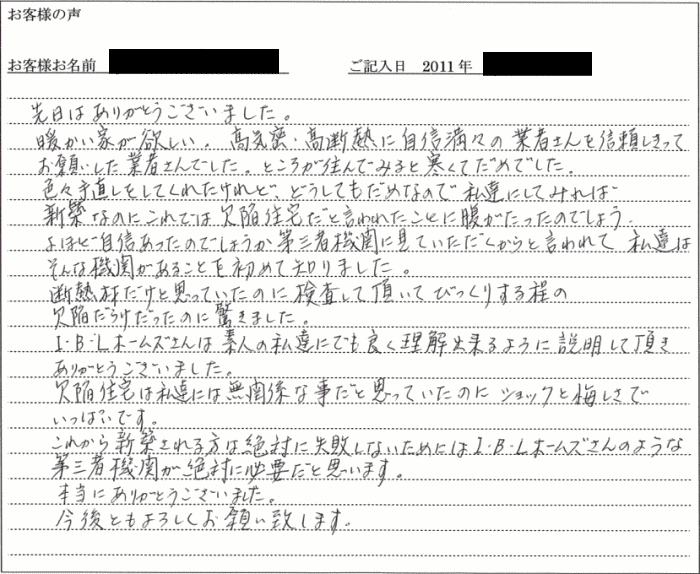 お客様の声
お客様お名前
ご記入日 2011年
先日はありがとうございました。
暖かい家が欲しい。高気密・高断熱に自信満々の業者さんを信頼しきって
お願いした業者さんでした。ところが住んでみると寒くてだめでした。
色々手直しをしてくれたけれど、どうしてもだめなので私達にしてみれば
新築なのにこれでは欠陥住宅だと言われたことに腹がたったのでしょう。
よほど自信あったのでしょうか第三者機関に見ていただくからと言われて、私達は
そんな機関があることを初めて知りました。
断熱材だけと思っていたのに検査して頂いてびっくりする程の
欠陥だらけだったのに驚きました。
I・B・Lホームズさんは素人の私達にでも良く理解出来るように説明して頂き
ありがとうございました。
欠陥住宅は私達には無関係な事だと思っていたのにショックと悔しさで
いっぱいです。
これから新築される方は絶対に失敗しないためにはI・B・Lホームズさんのような
第三者機関が絶対に必要だと思います。
本当にありがとうございました。
今後ともよろしくお願い致します。